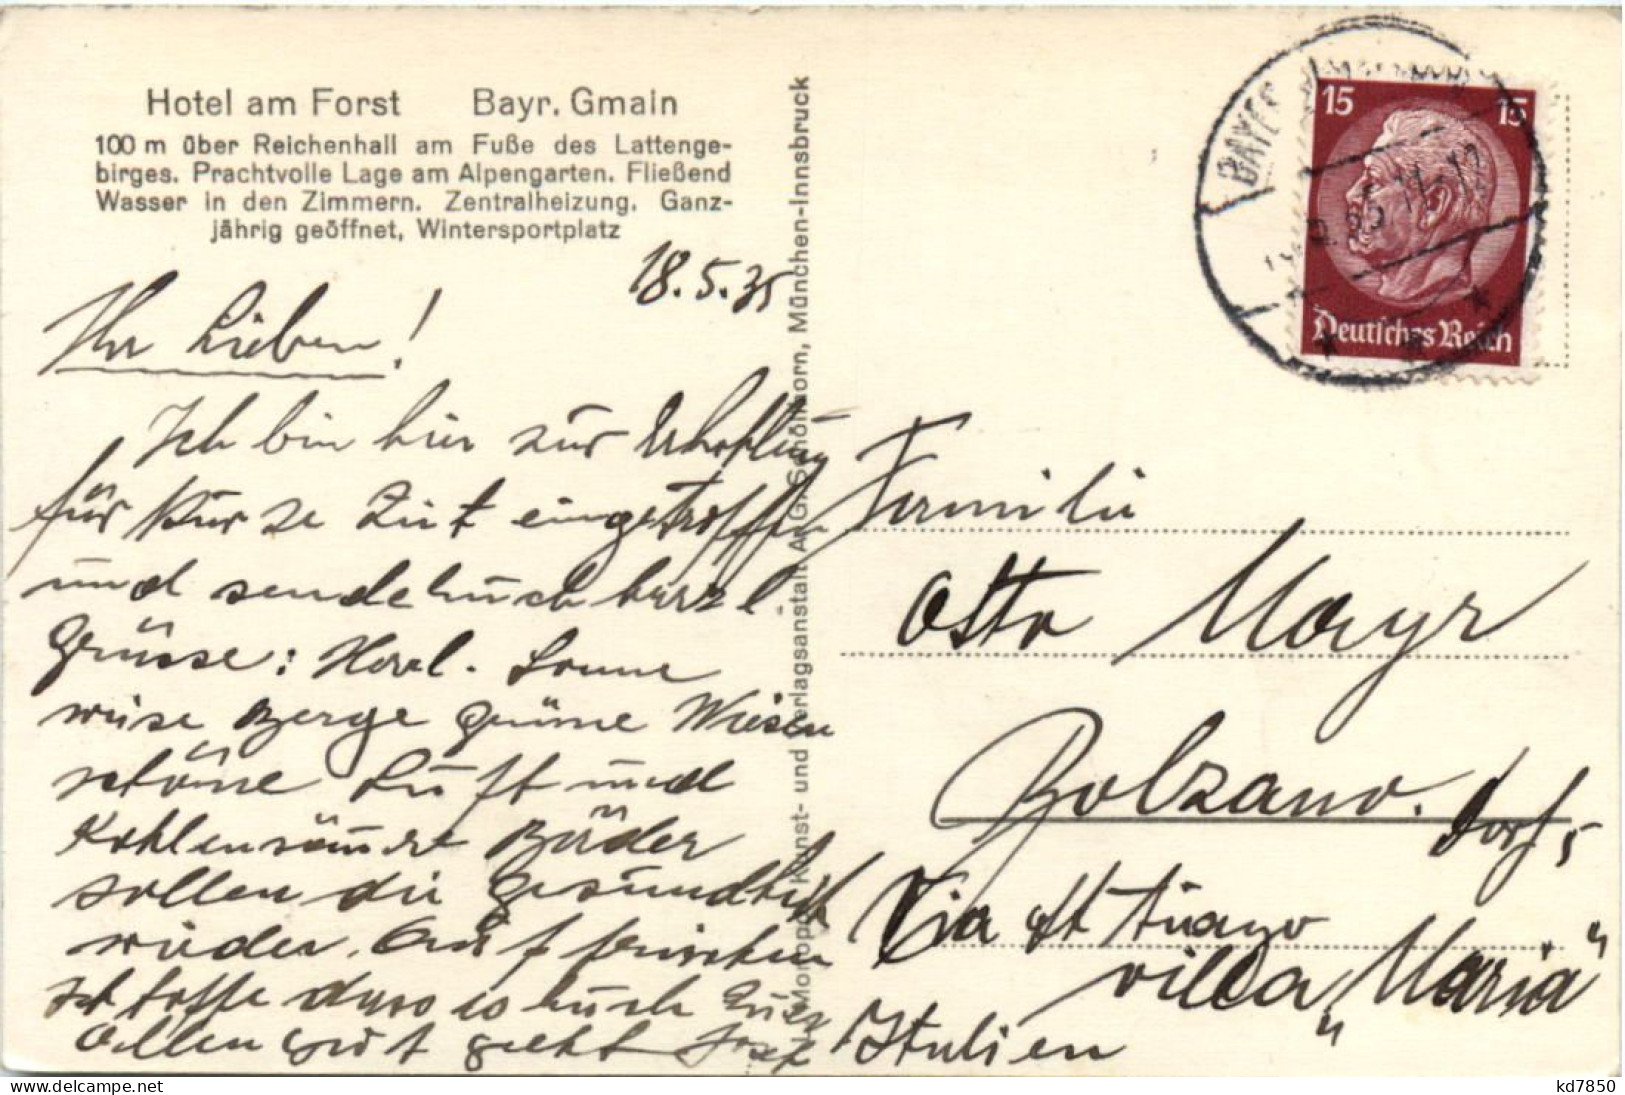 Hotel am Forst Bayr. Gmain
100 m über Reichenhall am Fuße des Lattenge-
birges. Prachtvolle Lage am Alpengarten. Fließend
Wasser in den Zimmern. Zentralheizung. Ganz-
jährig geöffnet, Wintersportplatz
18.5.35
Ihr Lieben!
Ich bin hier zur Erholung
für kurze Zeit eingetroffen
und sende Euch herzl
Grüsse: Herrl. Sonne
weise Berge grüne Wiesen
schöne Luft und
Kohlensäure Bäder
sollen die Gesundheit
wieder auffrischen
Ich hoffe dass es Euch
Allen gut geht Josef
Monopol Kunst- und Verlagsanstalt A.G. Schöllhorn, München-Innsbruck
15 15
Deutsches Reich
BAYER
Familie
Otto Mayr
Bolzano.
Dorf 5
Via
villa „Maria"
Italien
kd7850